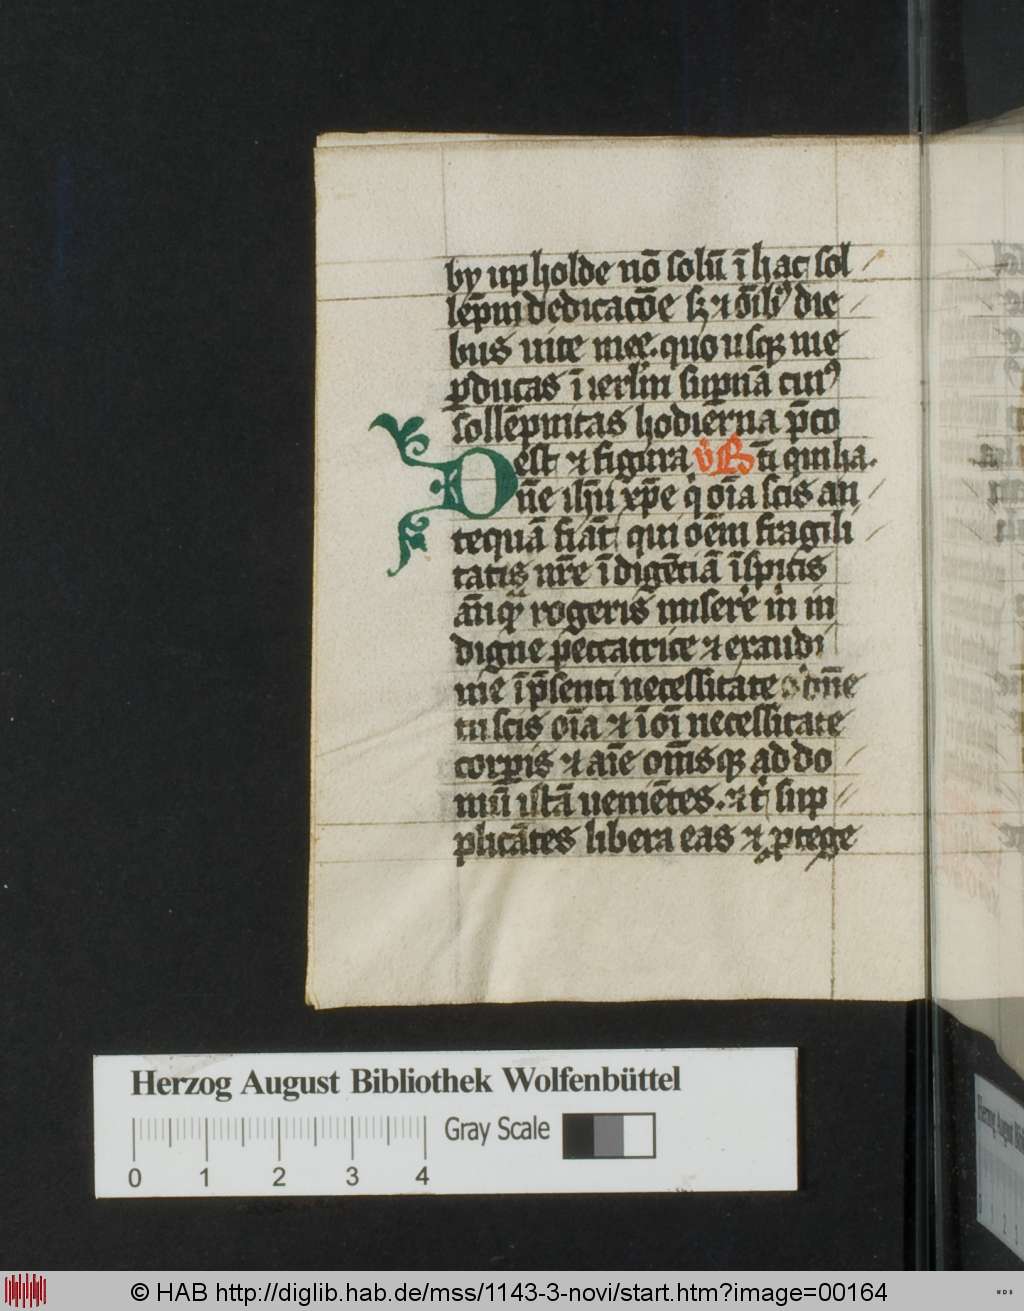 by up holde nō solū ī hac sol
lēpni dedicacōe sꝫ ⁊ oībꝰ die
bus uite mee. quo usqꝫ me
ꝑducas ī ierl̄m supnā cuiꝰ
sollēpnitas hodierna p̄co
est ⁊ figura v̓ Bn̄ti qui ha.
Dn̄e ihū xp̄e q̇ oīa scis an
tequā fiāt qui oēm fragili
tatis nr̄e īdigētiā īspicis
ān̄qꝫ rogeris miserere m̄ in
digne peccatrice ⁊ exaudi
me ī p̄senti necessitate o dn̄e
tu scis oīa ⁊ ī oī necessitate
corꝑis ⁊ aīe om̄sqꝫ ad do
mū istā uenietēs. ⁊ t̄ sup
plicātes libera eas ⁊ ꝓtege
Herzog August Bibliothek Wolfenbüttel
0 1 2 3 4 Gray Scale
© HAB http://diglib.hab.de/mss/1143-3-novi/start.htm?image=00164